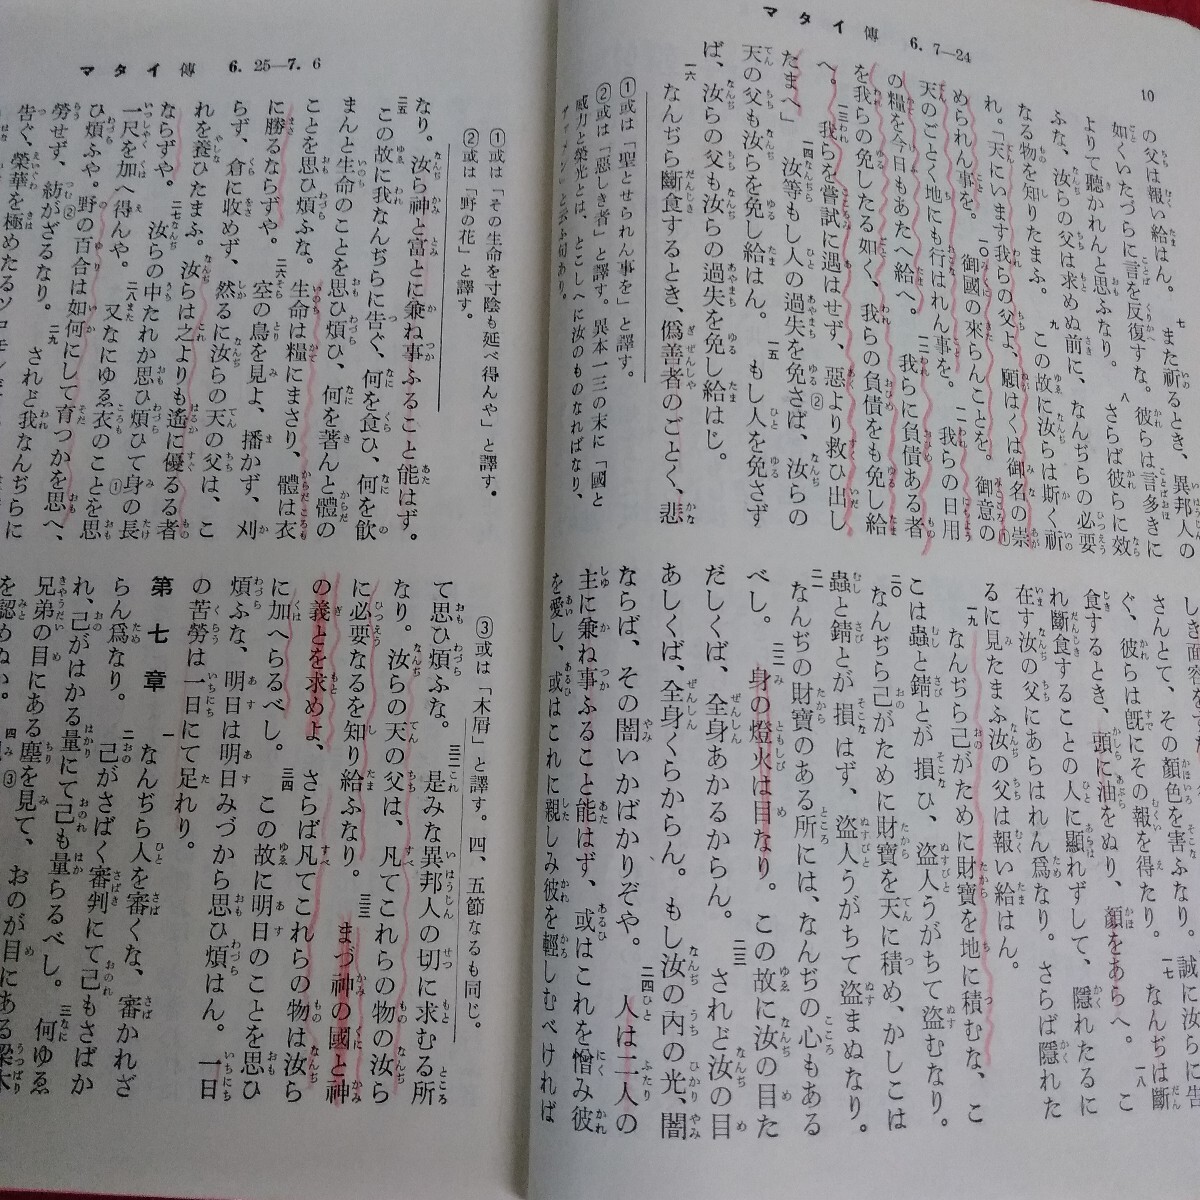 マタイ傳 6. 7—24
10
の父は報い給はん。 七 また祈るとき、異邦人の
如くいたづらに言を反復すな。彼らは言多きに
よりて聽かれんと思ふなり。 八 さらば彼らに效
ふな、汝らの父は求めぬ前に、なんぢらの必要
なる物を知りたまふ。 九 この故に汝らは斯く祈
れ。「天にいます我らの父よ、願はくは御名の崇
められん事を。 一〇 御國の來らんことを。御意の
天のごとく地にも行はれん事を。 一一 我らの日用
の糧を今日もあたへ給へ。 一二 我らに負債ある者
を我らの免したる如く、我らの負債をも免し給
へ。 一三 我らを嘗試に遇はせず、惡より救ひ出し
たまへ」 一四 汝等もし人の過失を免さば、汝らの
天の父も汝らを免し給はん。 一五 もし人を免さず
ば、汝らの父も汝らの過失を免し給はじ。
一六 なんぢら斷食するとき、僞善者のごとく、悲
①或は「聖とせられん事を」と譯す。
②或は「惡しき者」と譯す。異本一三の末に「國と
威力と榮光とは、とこしへに汝のものなればなり、
アァメン」と云ふ句あり。
しき面容
さんとて、その顏色を害ふなり。誠に汝らに告
ぐ、彼らは既にその報を得たり。 一七 なんぢは斷
食するとき、頭に油をぬり、顏をあらへ。 一八 こ
れ斷食することの人に顯れずして、隱れたるに
在す汝の父にあらはれん爲なり。さらば隱れた
るに見たまふ汝の父は報い給はん。
一九 なんぢら己がために財寶を地に積むな、こ
こは蟲と錆とが損ひ、盜人うがちて盜むなり。
二〇 なんぢら己がために財寶を天に積め、かしこは
蟲と錆とが損はず、盜人うがちて盜まぬなり。
二一 なんぢの財寶のある所には、なんぢの心もある
べし。 二二 身の燈火は目なり。この故に汝の目た
だしくば、全身あかるからん。 二三 されど汝の目
あしくば、全身くらからん。もし汝の内の光、闇
ならば、その闇いかばかりぞや。 二四 人は二人の
主に兼ね事ふること能はず、或はこれを憎み彼
を愛し、或はこれに親しみ彼を輕しむべければ
マタイ傳 6. 25—7. 6
なり。汝ら神と富とに兼ね事ふること能はず。
二五 この故に我なんぢらに告ぐ、何を食ひ、何を飮
まんと生命のことを思ひ煩ひ、何を著んと體の
ことを思ひ煩ふな。生命は糧にまさり、體は衣
に勝るならずや。 二六 空の鳥を見よ、播かず、刈
らず、倉に收めず、然るに汝らの天の父は、こ
れを養ひたまふ。汝らは之よりも遙に優るる者
ならずや。 二七 汝らの中たれか思ひ煩ひて身の長
一尺を加へ得んや。 二八 又なにゆゑ衣のことを思
ひ煩ふや。野の百合は如何にして育つかを思へ、
勞せず、紡がざるなり。 二九 されど我なんぢらに
告ぐ、榮華を極めたるソロモンだに
①或は「その生命を寸陰も延べ得んや」と譯す。
②或は「野の花」と譯す。
て思ひ煩ふな。 三二 是みな異邦人の切に求むる所
なり。汝らの天の父は、凡てこれらの物の汝ら
に必要なるを知り給ふなり。 三三 まづ神の國と神
の義とを求めよ、さらば凡てこれらの物は汝ら
に加へらるべし。 三四 この故に明日のことを思ひ
煩ふな、明日は明日みづから思ひ煩はん。一日
の苦勞は一日にて足れり。
第七章 一 なんぢら人を審くな、審かれざ
らん爲なり。 二 己がさばく審判にて己もさばか
れ、己がはかる量にて己も量らるべし。 三 何ゆゑ
兄弟の目にある塵を見て、おのが目にある梁木
を認めぬか。 四
③或は「木屑」と譯す。四、五節なるも同じ。